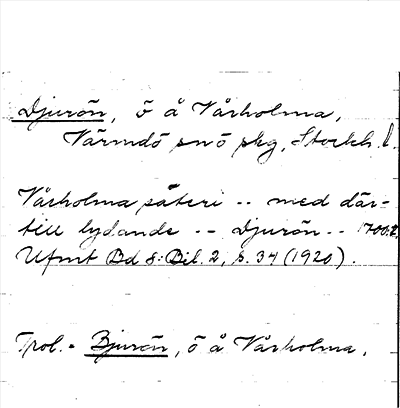 Djurön, ö å Vårholma,
Värmdö snö skg, Stockh. l.
Vårholma säteri -- med där-
till lydande -- Djurön -- 1700.t.
Ufmt Bd 8: Bil. 2, s. 34 (1920).
Trol. = Bjurön, ö å Vårholma.